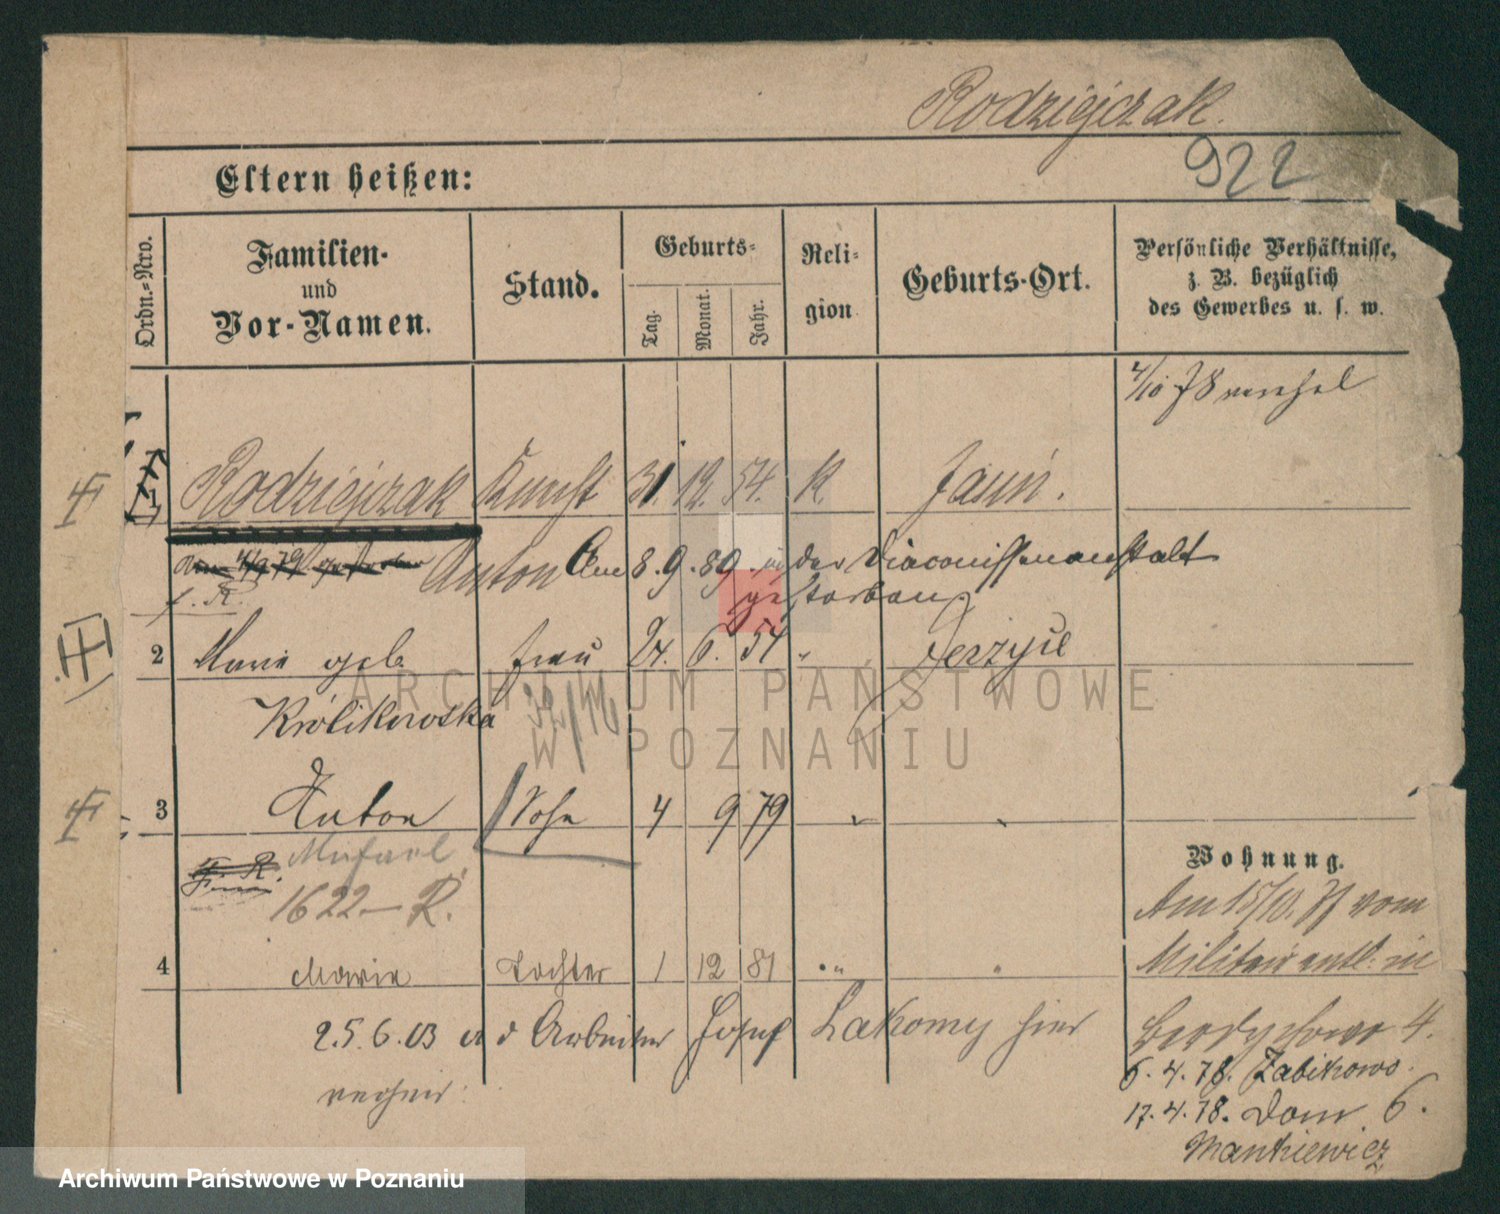 Rodziejczak.
922
Eltern heißen:
Ordn.=Nro.
Familien- und Vor-Namen.
Stand.
Geburts=
Tag.
Monat.
Jahr.
Reli=gion
Geburts-Ort.
Persönliche Verhältnisse,
z. B. bezüglich
des Gewerbes u. s. w.
4/10 78
1 Rodziejczak 31. 12. 54. K.
Anton Am 8. 9. 89. in der Diaconissenanstalt
gestorben
2 Marie geb. Frau 24. 6. 54 "
Królikowska
3 Anton Sohn 4 9 79 "
1622 – R.
Wohnung.
Am 15/10. 77 vom
Militair entl. in
4 Marie Tochter 1 12 81 " "
25.6.03 Arbeiter Josef Lakomy hier
4.
6. 4. 78. Zabikowo.
17. 4. 78. Dom 6.
Mankiewicz
ARCHIWUM PAŃSTWOWE
W POZNANIU
Archiwum Państwowe w Poznaniu